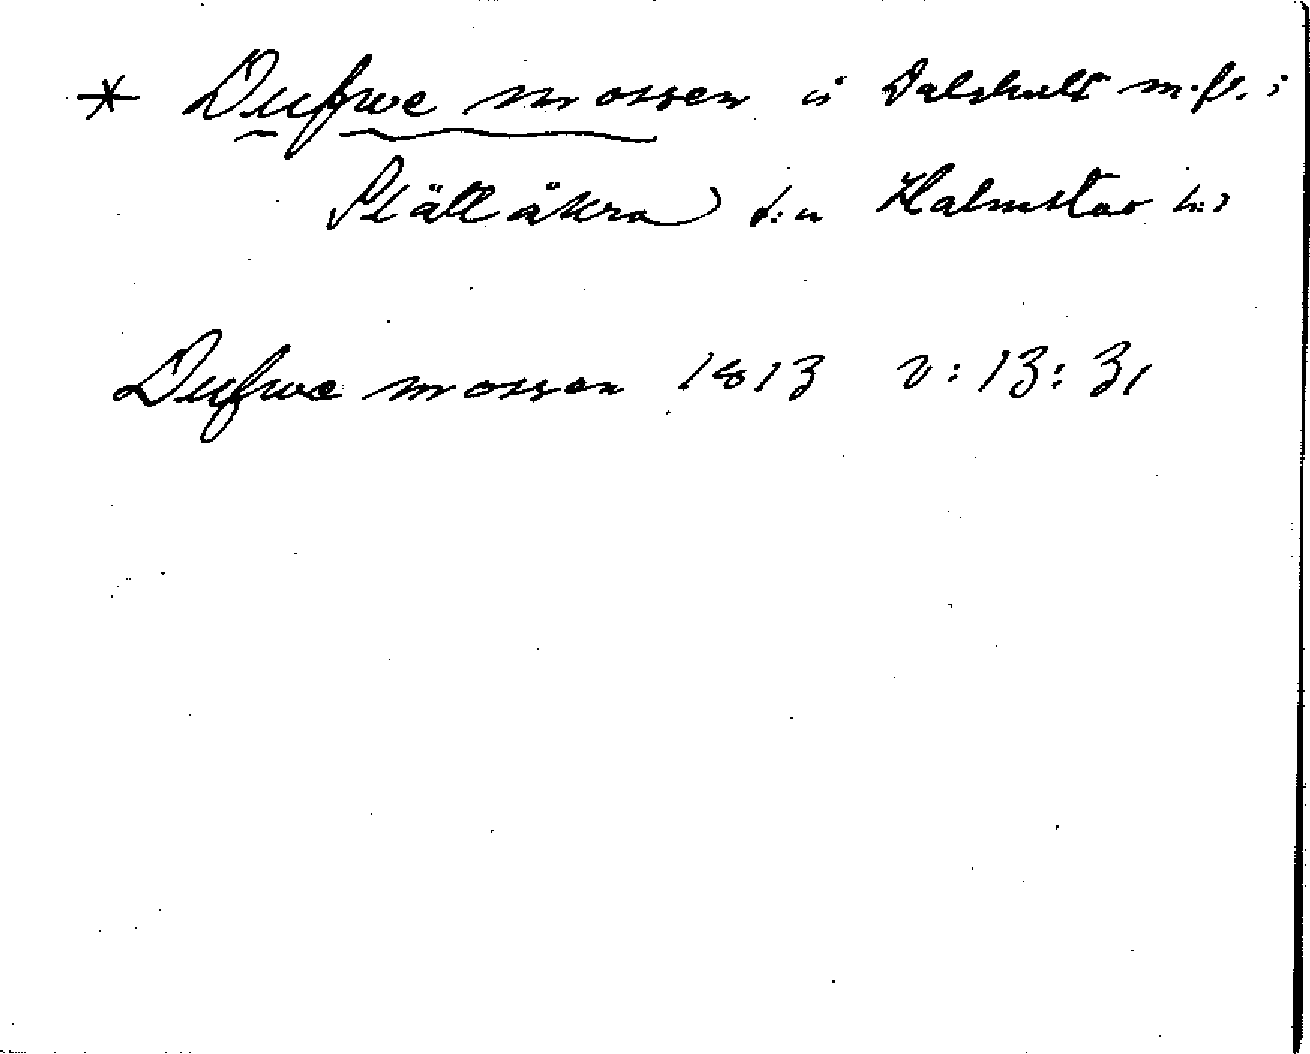 * Dufwe mossen i Dalshult m.fl. i
Slättåkra s:n Halmstad h:d
Dufwe mossen 1813 v: 13: 31